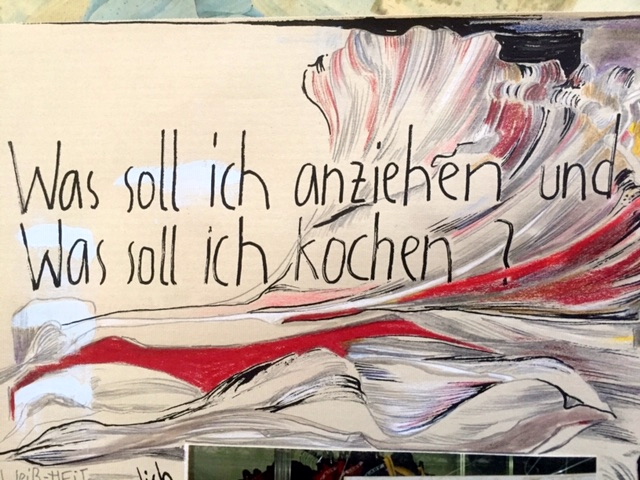 Was soll ich anziehen und
Was soll ich kochen ?